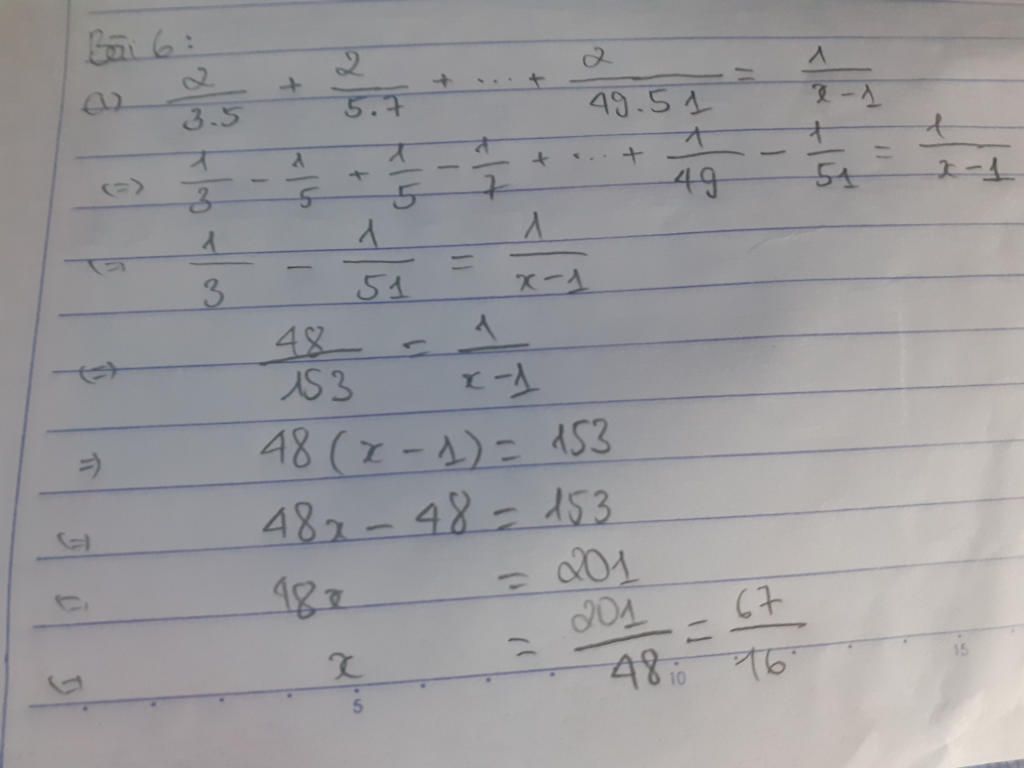 Bài 6:
(1) 2/3.5 + 2/5.7 + ... + 2/49.51 = 1/x-1
(=) 1/3 - 1/5 + 1/5 - 1/7 + ... + 1/49 - 1/51 = 1/x-1
(=) 1/3 - 1/51 = 1/x-1
(=) 48/153 = 1/x-1
=) 48(x-1) = 153
(=) 48x - 48 = 153
(=) 48x = 201
(=) x = 201/48 = 67/16
5 10 15